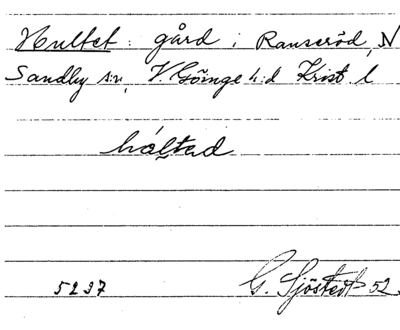 Hultet: gård i Ranseröd, N
Sandby sn, V. Göinge h:d Krist. l
håltad
5237 G. Sjöstedt 52.